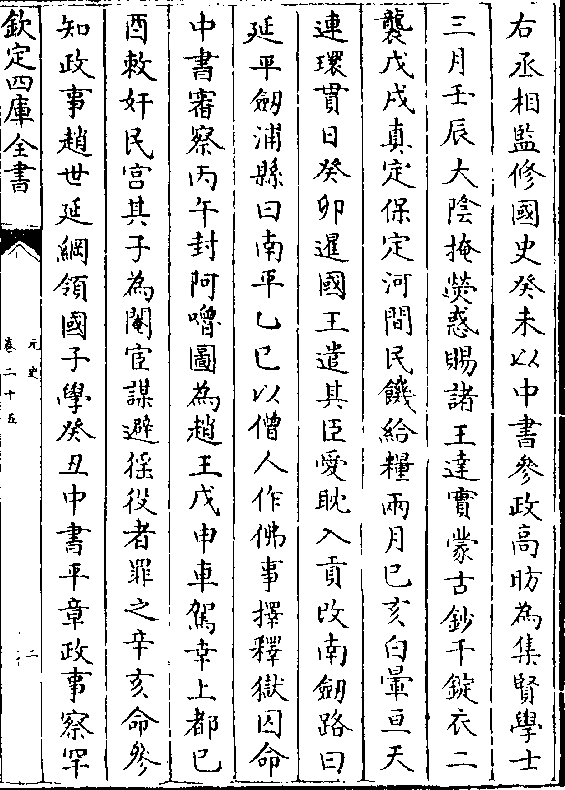 右丞相監修國史癸未以中書參政高昉為集賢學士
三月壬辰太陰掩熒惑賜諸王達實蒙古鈔千錠衣二
襲戊戌真定保定河間民饑給糧兩月己亥白暈亘天
連環貫日癸卯暹國王遣其臣愛耽入貢改南劔路曰
延平劔浦縣曰南平乙巳以僧人作佛事擇釋獄囚命
中書審察丙午封阿嚕圖為趙王戊申車駕幸上都己
酉敕奸民宮其子為閹宦謀避徭役者罪之辛亥命參
知政事趙世延綱領國子學癸丑中書平章政事察罕
欽定四庫全書
元史
卷二十五
二